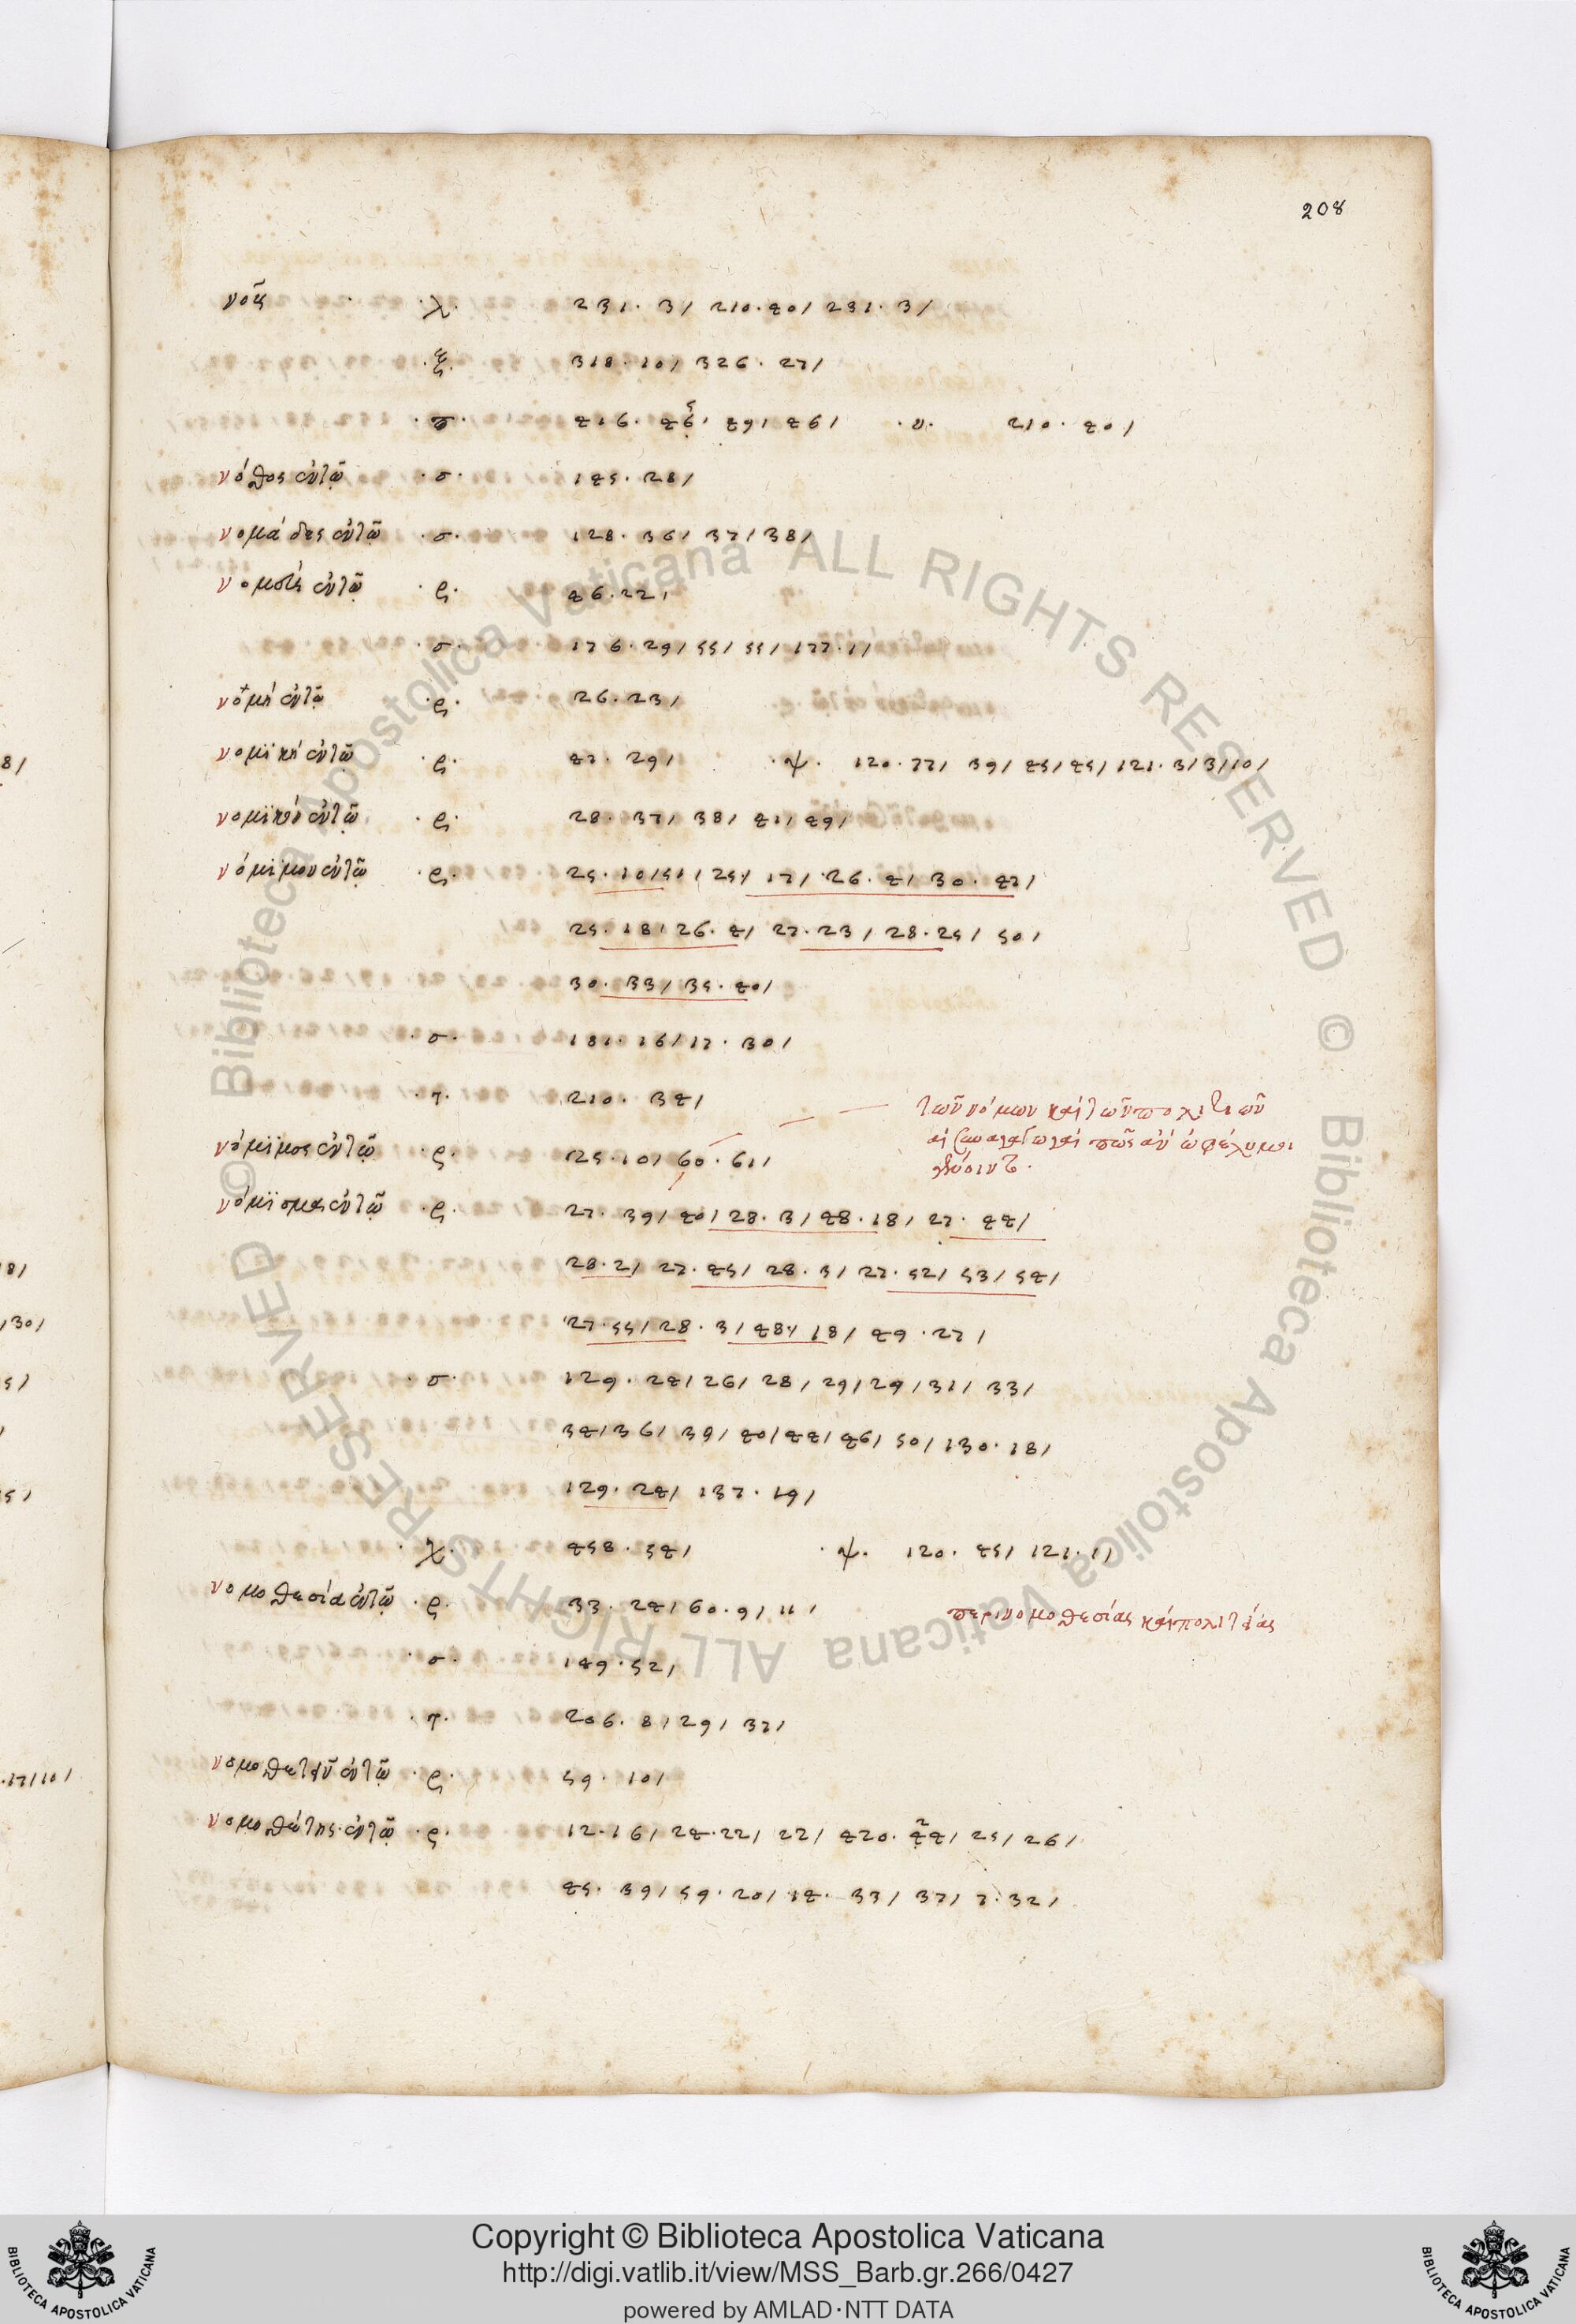 208
νοῦς · λ · 231 · 3 / 210 · 40 / 231 · 3 /
· ξ · 318 · 10 / 326 · 27 /
46 / · υ · 210 · 40 /
νόθος ἐν τῷ · σ · 145 · 28 /
νομάδες ἐν τῷ · σ · 128 · 36 / 37 / 38 /
ἐν τῷ · ρ · 46 · 22 /
· σ · 176 · 29 / 55 / 55 / 177 · 1 /
νομὴ ἐν τῷ · ρ · 26 · 23 /
νομικὴ ἐν τῷ · ρ · 47 · 29 / · ψ · 120 · 77 / 39 / 45 / 45 / 121 · 3 / 3 / 10 /
νομικὸν ἐν τῷ · ρ · 28 · 37 / 38 / 41 / 49 /
νόμιμον ἐν τῷ · ρ · 25 · 10 / 51 / 25 / 17 / 26 · 4 / 30 · 47 /
25 · 18 / 26 · 4 / 27 · 23 / 28 · 25 / 50 /
30 · 33 / 35 · 40 /
· σ · 181 · 16 / 17 · 30 /
· τ · 210 · 34 /
τῶν νόμων καὶ τῶν πολιτειῶν
νόμιμος ἐν τῷ · ρ · 25 · 10 / 60 · 61 /
αἱ συναγωγαὶ πῶς ἂν ὠφέλιμοι
γένοιντο ·
νόμισμα ἐν τῷ · ρ · 27 · 39 / 40 / 28 · 3 / 48 · 18 / 27 · 44 /
28 · 2 / 27 · 45 / 28 · 3 / 27 · 52 / 53 / 54 /
27 · 55 / 28 · 3 / 48 / 18 / 49 · 27 /
· σ · 129 · 24 / 26 / 28 / 29 / 29 / 31 / 33 /
34 / 36 / 39 / 40 / 44 / 46 / 50 / 130 · 18 /
129 · 24 / 137 · 19 /
· χ · 458 · 54 / · ψ · 120 · 45 / 121 · 1 /
νομοθεσία ἐν τῷ · ρ · 33 · 24 / 60 · 9 / 11 / περὶ νομοθεσίας καὶ πολιτείας
· σ · 149 · 52 /
· τ · 206 · 8 / 29 / 37 /
νομοθετεῖν ἐν τῷ · ρ · 59 · 10 /
νομοθέτης ἐν τῷ · ρ · 12 · 16 / 24 · 22 / 22 / 420 · 44 / 25 / 26 /
45 · 39 / 59 · 20 / 14 · 33 / 37 / 7 · 32 /
8 /
18 /
/ 30 /
5 /
5 /
· 17 / 10 /
© Biblioteca Apostolica Vaticana ALL RIGHTS RESERVED
© Biblioteca Apostolica Vaticana ALL RIGHTS RESERVED
Copyright © Biblioteca Apostolica Vaticana
http://digi.vatlib.it/view/MSS_Barb.gr.266/0427
powered by AMLAD·NTT DATA
BIBLIOTECA APOSTOLICA VATICANA
BIBLIOTECA APOSTOLICA VATICANA